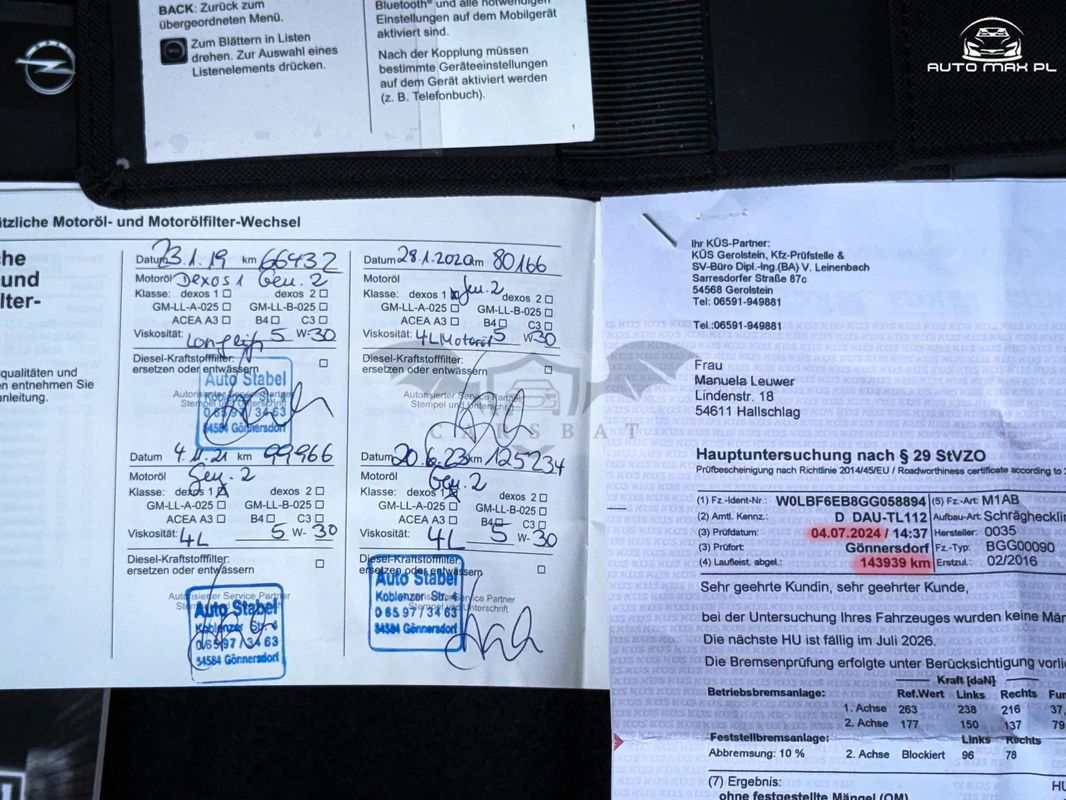 BACK: Zurück zum
übergeordneten Menü.
Zum Blättern in Listen
drehen. Zur Auswahl eines
Listenelements drücken.
Bluetooth® und alle notwendigen
Einstellungen auf dem Mobilgerät
aktiviert sind.
Nach der Kopplung müssen
bestimmte Geräteeinstellungen
auf dem Gerät aktiviert werden
(z. B. Telefonbuch).
1
AUTO MAX PL
tzliche Motoröl- und Motorölfilter-Wechsel
che
und
lter-
qualitäten und
en entnehmen Sie
anleitung.
Datum 23.1.19 km 66432
Motoröl Dexos 1 Gen. 2
Klasse: dexos 1 dexos 2
GM-LL-A-025 GM-LL-B-025
ACEA A3 B4 C3
Viskosität: Longlife 5 W-30
Diesel-Kraftstofffilter:
ersetzen oder entwässern
Autorisierter Service Partner
Stempel und Unterschrift
Auto Stabel
06597/3463
54584 Gönnersdorf
Datum 28.1.2020 km 80166
Motoröl Gen. 2
Klasse: dexos 1 dexos 2
GM-LL-A-025 GM-LL-B-025
ACEA A3 B4 C3
Viskosität: 4L Motoröl 5 W-30
Diesel-Kraftstofffilter:
ersetzen oder entwässern
Autorisierter Service Partner
Stempel und Unterschrift
CARSBAT
Datum 4.11.21 km 99966
Motoröl Gen. 2
Klasse: dexos 1 dexos 2
GM-LL-A-025 GM-LL-B-025
ACEA A3 B4 C3
Viskosität: 4L 5 W-30
Diesel-Kraftstofffilter:
ersetzen oder entwässern
Autorisierter Service Partner
Auto Stabel
Koblenzer Str. 4
06597/3463
54584 Gönnersdorf
Datum 20.6.23 km 125234
Motoröl Gen. 2
Klasse: dexos 1 dexos 2
GM-LL-A-025 GM-LL-B-025
ACEA A3 B4 C3
Viskosität: 4L 5 W-30
Diesel-Kraftstofffilter:
ersetzen oder entwässern
Autorisierter Service Partner
Stempel und Unterschrift
Auto Stabel
Koblenzer Str. 4
06597/3463
54584 Gönnersdorf
Ihr KÜS-Partner:
KÜS Gerolstein, Kfz-Prüfstelle &
SV-Büro Dipl.-Ing.(BA) V. Leinenbach
Sarresdorfer Straße 87c
54568 Gerolstein
Tel: 06591-949881
Tel.:06591-949881
Frau
Manuela Leuwer
Lindenstr. 18
54611 Hallschlag
Hauptuntersuchung nach § 29 StVZO
Prüfbescheinigung nach Richtlinie 2014/45/EU / Roadworthiness certificate according to
(1) Fz.-Ident-Nr.: W0LBF6EB8GG058894 (5) Fz.-Art: M1AB
(2) Amtl. Kennz.: D DAU-TL112 Aufbau-Art: Schräghecklin
(3) Prüfdatum: 04.07.2024 / 14:37 Hersteller: 0035
(3) Prüfort: Gönnersdorf Fz.-Typ: BGG00090
(4) Laufleist. abgel.: 143939 km Erstzul.: 02/2016
Sehr geehrte Kundin, sehr geehrter Kunde,
bei der Untersuchung Ihres Fahrzeuges wurden keine Män
Die nächste HU ist fällig im Juli 2026.
Die Bremsenprüfung erfolgte unter Berücksichtigung vorlie
Kraft [daN]
Betriebsbremsanlage: Ref.Wert Links Rechts Fun
1. Achse 263 238 216 37,
2. Achse 177 150 137 79
Feststellbremsanlage: Links Rechts
Abbremsung: 10 % 2. Achse Blockiert 96 78
(7) Ergebnis: HU
ohne festgestellte Mängel (OM)